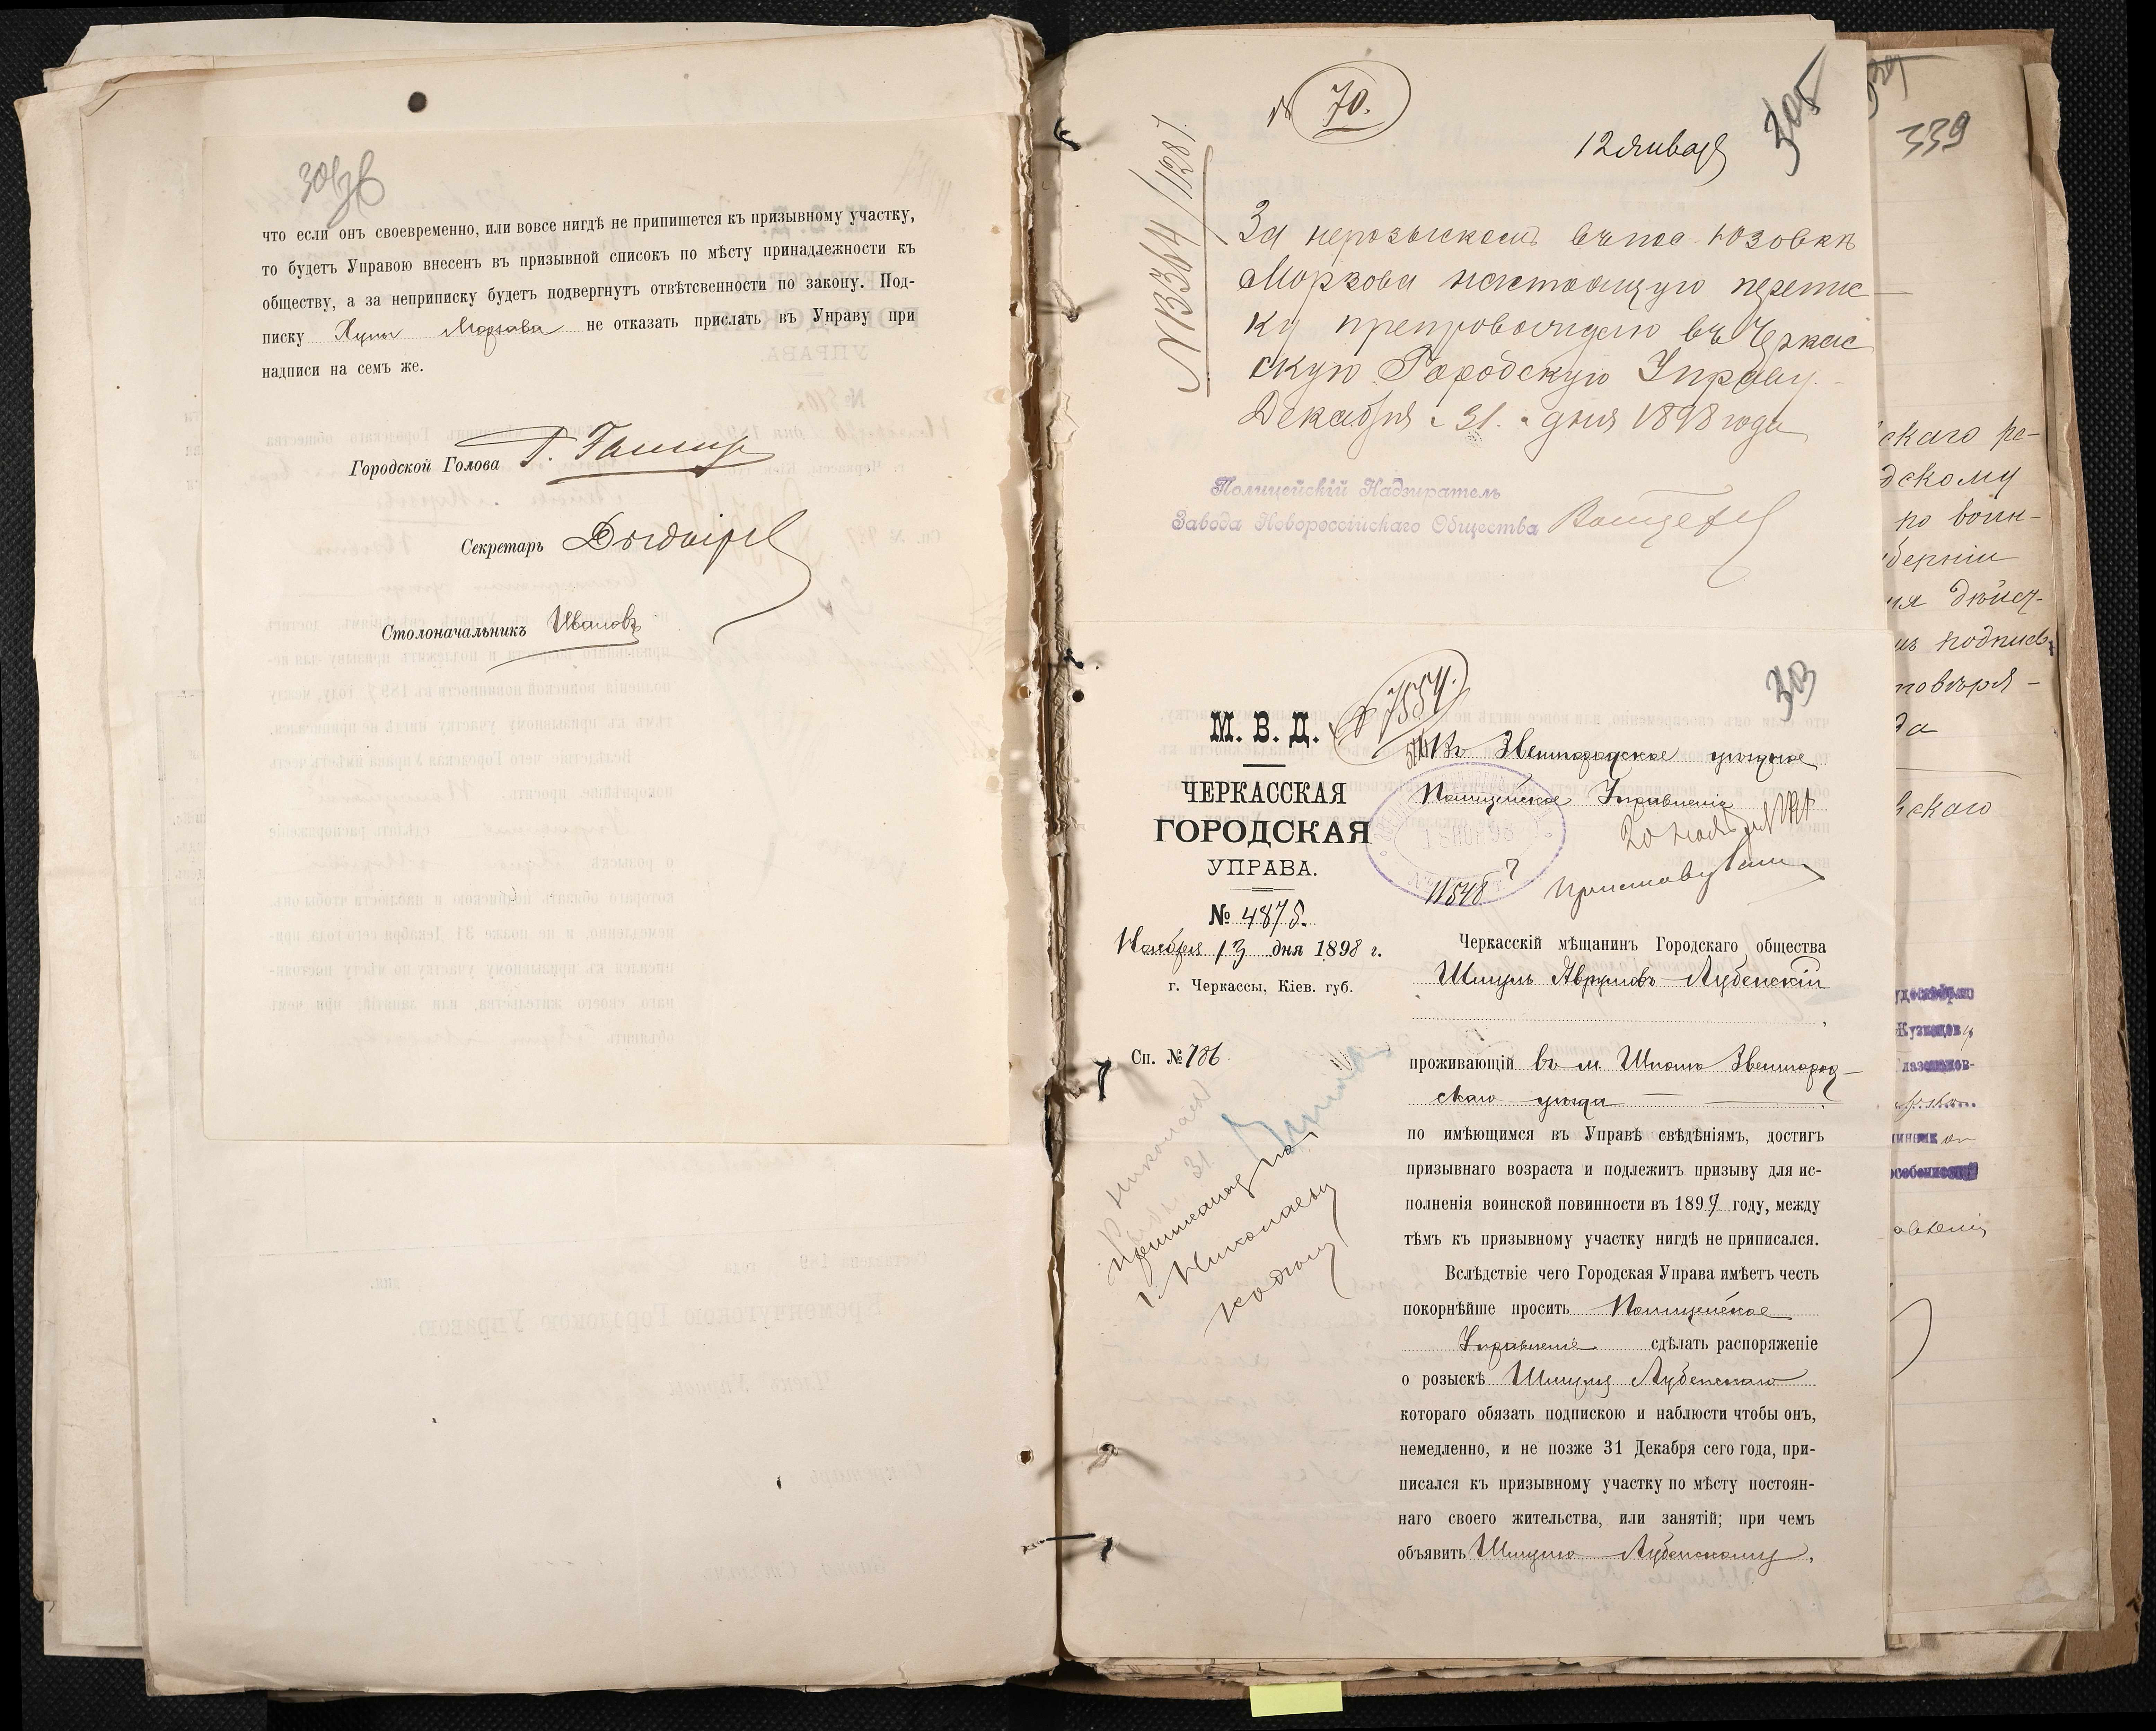 что если онъ своевременно, или вовсе нигдѣ не припишется къ призывному участку,
то будетъ Управою внесенъ въ призывной списокъ по мѣсту принадлежности къ
обществу, а за неприписку будетъ подвергнутъ отвѣтсвенности по закону. Под-
писку не отказать прислать въ Управу при
надписи на семъ же.
Городской Голова
Секретарь
Столоначальникъ Ивановъ
№ 70.
12 Января
305
№ 13364/11287.
За нерозыскомъ въ пос. Юзовкѣ
Моргова настоящую перепис-
ку препровождаю въ Черкас
скую Городскую Управу.
Декабря „31" дня 1898 года
Полицейскій Надзиратель
Завода Новороссійскаго Общества
М. В. Д.
ЧЕРКАССКАЯ
ГОРОДСКАЯ
УПРАВА.
№ 4878.
Ноября 13 дня 1898 г.
г. Черкассы, Кіев. губ.
Сп. № 786
7554.
Въ Звенигородское уѣздное
Полицейское Управленіе
20 Ноября
Приставу
Черкасскій мѣщанинъ Городскаго общества
Шмуль Аврумовъ Лубенскій
проживающій въ м. Шполѣ Звенигород-
скаго уѣзда
по имѣющимся въ Управѣ свѣдѣніямъ, достигъ
призывнаго возраста и подлежитъ призыву для ис-
полненія воинской повинности въ 1899 году, между
тѣмъ къ призывному участку нигдѣ не приписался.
Вслѣдствіе чего Городская Управа имѣетъ честь
покорнѣйше просить Полицейское
Управленіе сдѣлать распоряженіе
о розыскѣ Шмуля Лубенскаго
котораго обязать подпискою и наблюсти чтобы онъ,
немедленно, и не позже 31 Декабря сего года, при-
писался къ призывному участку по мѣсту постоян-
наго своего жительства, или занятій; при чемъ
объявить Шмулю Лубенскому,
г. Николаевѣ
339
скаго ре-
дскому
по воин-
берніи
подпись
повѣря-
да
скаго